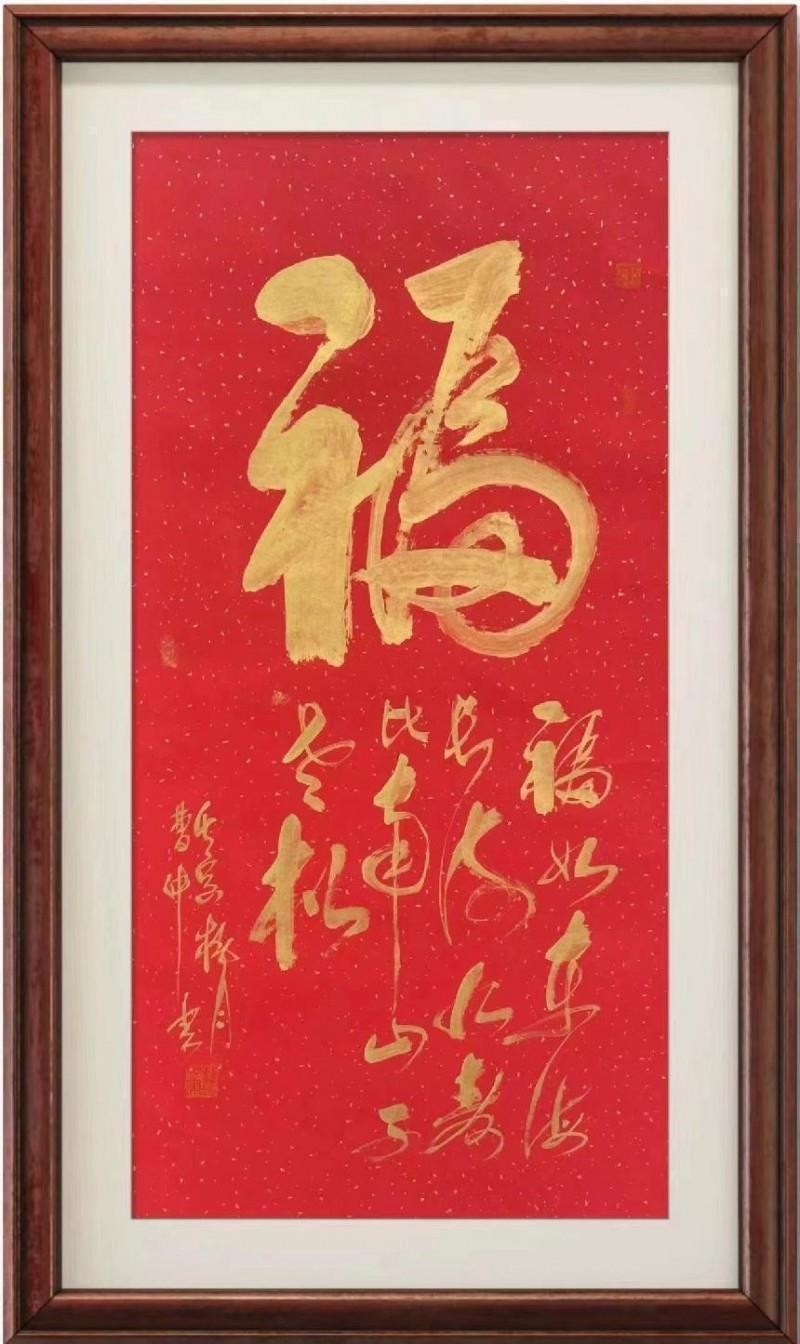 福
福如东海
长流水寿
比南山不
老松
桃月
曹申书